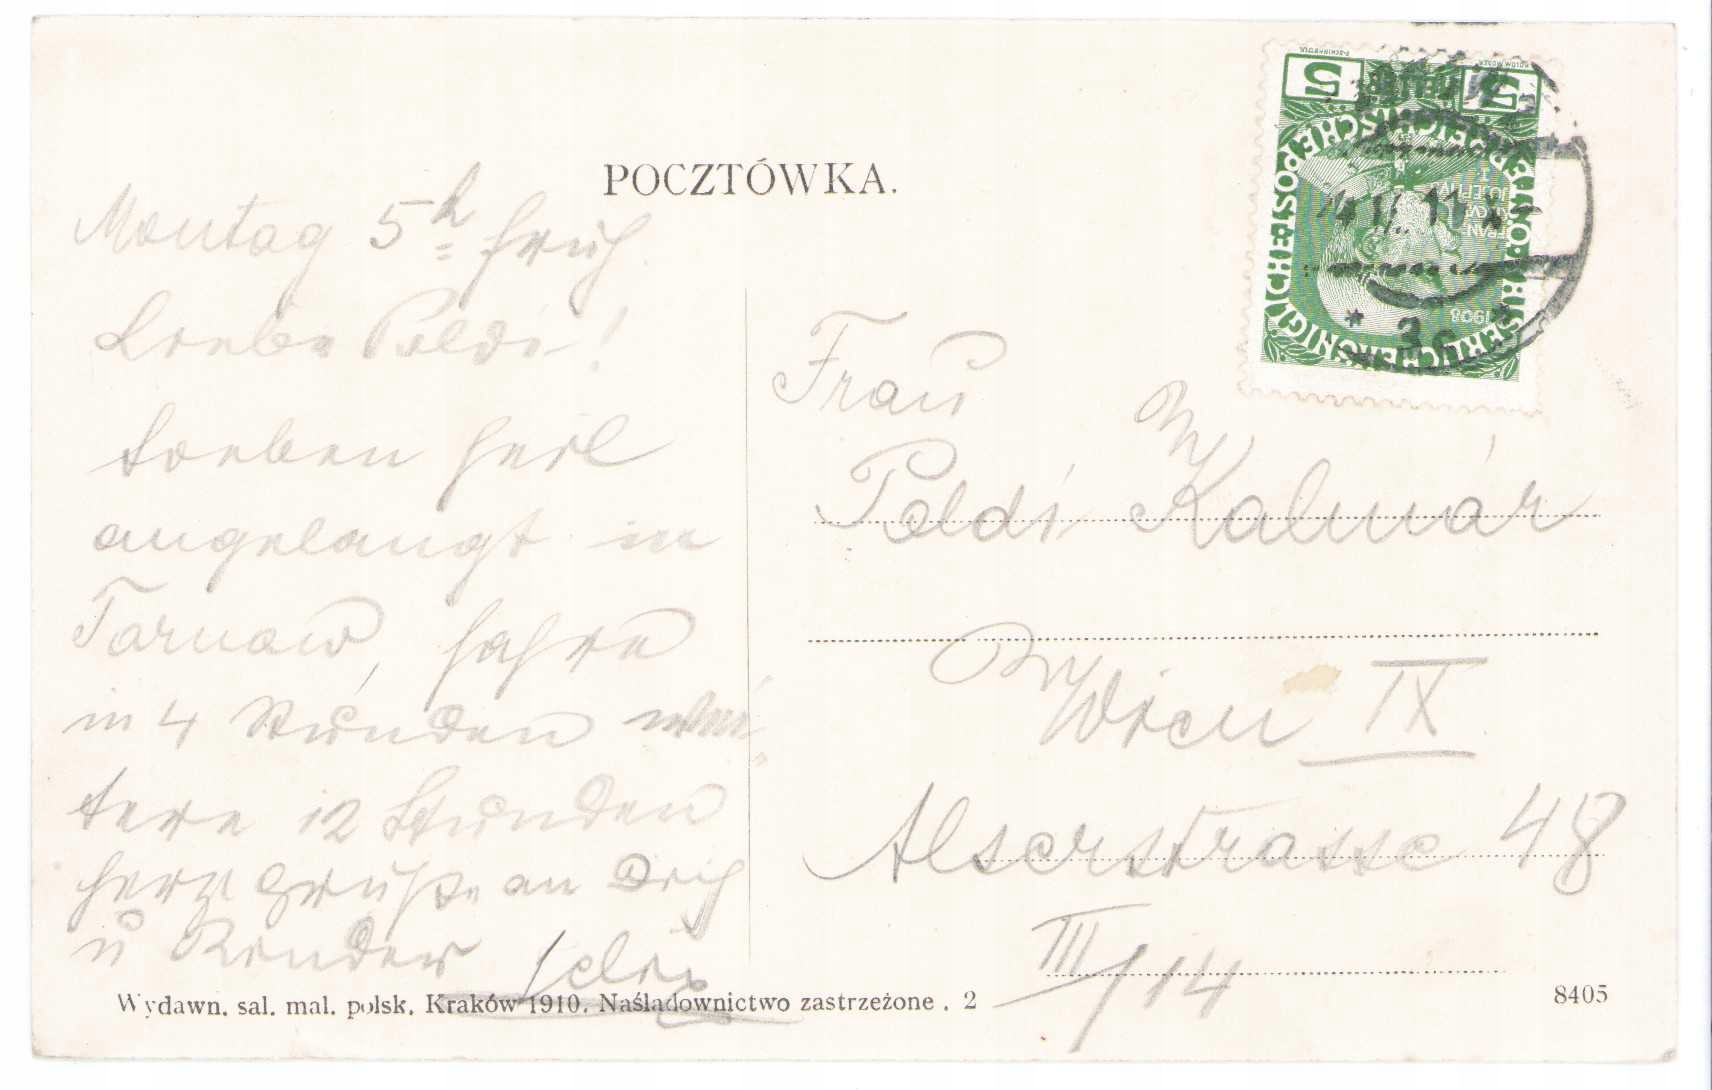 POCZTÓWKA.
Montag 5h früh
Liebe Poldi!
Soeben heil
angelangt in
Tarnow, fahre
in 4 Stunden wei
tere 12 Stunden
herzl Grüße an Dich
u Kinder
Frau
Poldi Kalmár
Wien IX
Alserstrasse 48
III/14
5 HELLER 5
KAISERLICHE KÖNIGLICHE ÖSTERREICHISCHE POST
1908
Wydawn. sal. mal. polsk. Kraków 1910. Naśladownictwo zastrzeżone . 2
8405